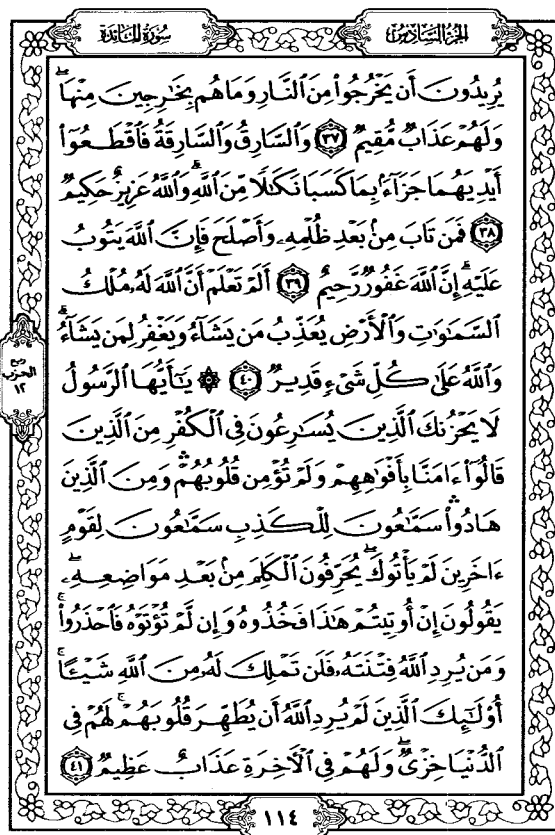 سُورَةُ المَائِدَةِ
الجُزْءُ السَّادِسُ
يُرِيدُونَ أَن يَخْرُجُوا۟ مِنَ ٱلنَّارِ وَمَا هُم بِخَـٰرِجِينَ مِنْهَا ۖ
وَلَهُمْ عَذَابٌ مُّقِيمٌ ٣٧ وَٱلسَّارِقُ وَٱلسَّارِقَةُ فَٱقْطَعُوٓا۟
أَيْدِيَهُمَا جَزَآءًۢ بِمَا كَسَبَا نَكَـٰلًا مِّنَ ٱللَّهِ ۗ وَٱللَّهُ عَزِيزٌ حَكِيمٌ
٣٨ فَمَن تَابَ مِنۢ بَعْدِ ظُلْمِهِۦ وَأَصْلَحَ فَإِنَّ ٱللَّهَ يَتُوبُ
عَلَيْهِ ۗ إِنَّ ٱللَّهَ غَفُورٌ رَّحِيمٌ ٣٩ أَلَمْ تَعْلَمْ أَنَّ ٱللَّهَ لَهُۥ مُلْكُ
ٱلسَّمَـٰوَٰتِ وَٱلْأَرْضِ يُعَذِّبُ مَن يَشَآءُ وَيَغْفِرُ لِمَن يَشَآءُ ۗ
وَٱللَّهُ عَلَىٰ كُلِّ شَىْءٍ قَدِيرٌ ٤٠ ۞ يَـٰٓأَيُّهَا ٱلرَّسُولُ
لَا يَحْزُنكَ ٱلَّذِينَ يُسَـٰرِعُونَ فِى ٱلْكُفْرِ مِنَ ٱلَّذِينَ
قَالُوٓا۟ ءَامَنَّا بِأَفْوَٰهِهِمْ وَلَمْ تُؤْمِن قُلُوبُهُمْ ۛ وَمِنَ ٱلَّذِينَ
هَادُوا۟ ۛ سَمَّـٰعُونَ لِلْكَذِبِ سَمَّـٰعُونَ لِقَوْمٍ
ءَاخَرِينَ لَمْ يَأْتُوكَ ۖ يُحَرِّفُونَ ٱلْكَلِمَ مِنۢ بَعْدِ مَوَاضِعِهِۦ ۖ
يَقُولُونَ إِنْ أُوتِيتُمْ هَـٰذَا فَخُذُوهُ وَإِن لَّمْ تُؤْتَوْهُ فَٱحْذَرُوا۟ ۚ
وَمَن يُرِدِ ٱللَّهُ فِتْنَتَهُۥ فَلَن تَمْلِكَ لَهُۥ مِنَ ٱللَّهِ شَيْـًٔا ۚ
أُو۟لَـٰٓئِكَ ٱلَّذِينَ لَمْ يُرِدِ ٱللَّهُ أَن يُطَهِّرَ قُلُوبَهُمْ ۚ لَهُمْ فِى
ٱلدُّنْيَا خِزْىٌ ۖ وَلَهُمْ فِى ٱلْـَٔاخِرَةِ عَذَابٌ عَظِيمٌ ٤١
ربع
الحزب
١٢
١١٤